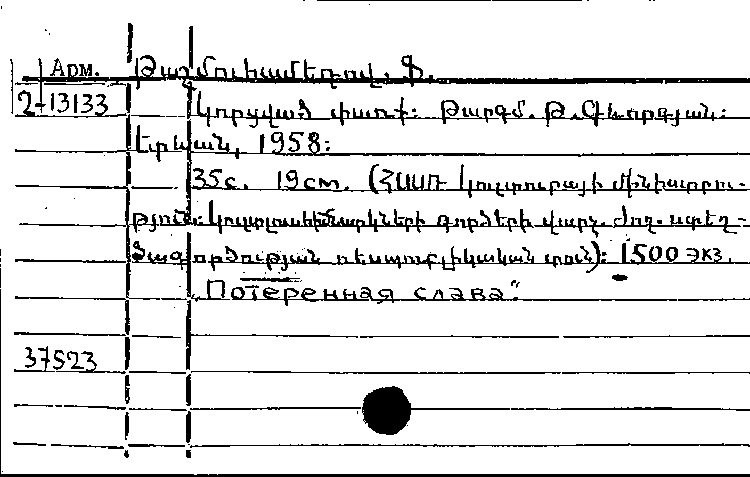 Арм. Թաշմուխամեդով, Ֆ.
2-13133 Կորցված փառք: Թարգմ. Թ. Գևորգյան:
Երևան, 1958:
35с. 19см. (ՀՍՍՌ Կուլտուրայի մինիստրու-
թյուն: Կուլտլուսհիմնարկների գործերի վարչ. ժող. ստեղ-
ծագործության ռեսպուբլիկական տուն): 1500 экз.
"Потеренная слава".
37523